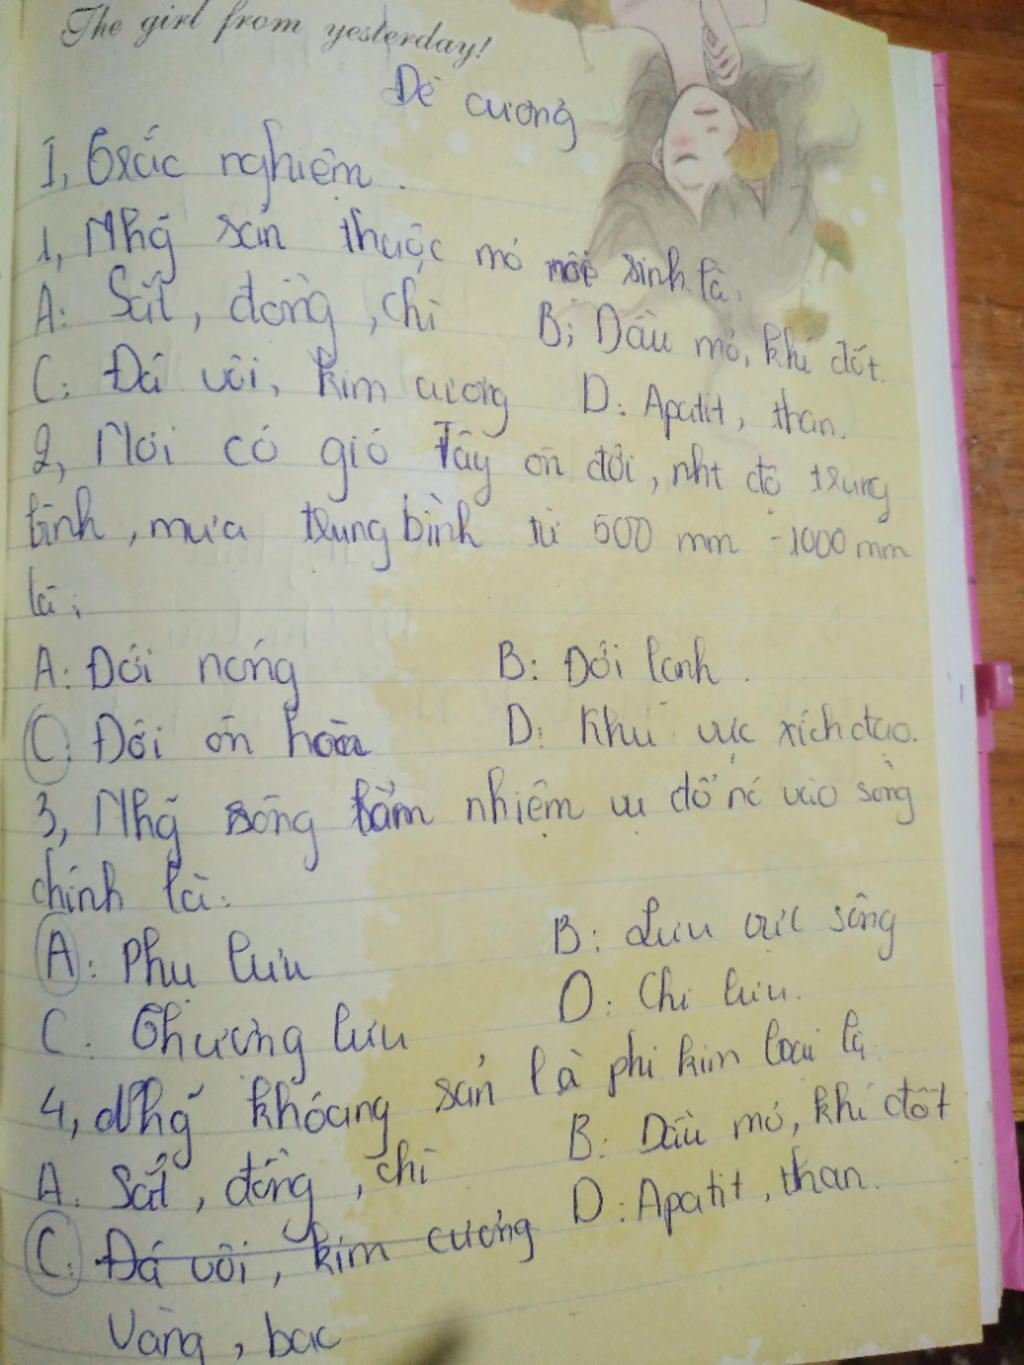 The girl from yesterday!
Đề cương
I, Trắc nghiệm.
1, Nhg̃ sản thuộc mỏ nội sinh là:
A: Sắt, đồng, chì B; Dầu mỏ, khí đốt.
C: Đá vôi, kim cương D: Apatit, than.
2, Nơi có gió Tây ôn đới, nht độ trung
bình, mưa trung bình từ 500 mm - 1000 mm
là:
A: Đới nóng B: Đới lạnh.
C: Đới ôn hòa D: Khu vực xích đạo.
3, Nhg̃ sông đảm nhiệm vụ đổ nc vào sông
chính là:
A: Phụ lưu B: Lưu vực sông
C: Thượng lưu D: Chi lưu.
4, Nhg̃ khoáng sản là phi kim loại là
A. Sắt, đồng, chì B: Dầu mỏ, khí đốt
C: Đá vôi, kim cương D: Apatit, than.
Vàng, bạc